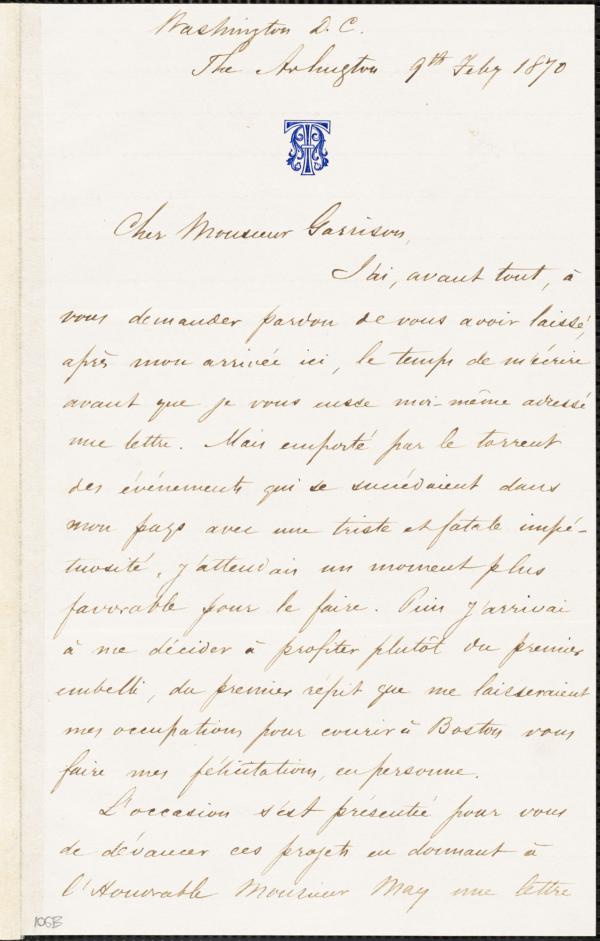 Washington D. C.
The Arlington 9th Feby 1870
Cher Monsieur Garrison,
J'ai, avant tout, à
vous demander pardon de vous avoir laissé,
après mon arrivée ici, le temps de m'écrire
avant que je vous eusse moi-même adressé
une lettre. Mais emporté par le torrent
des événements qui se succédaient dans
mon pays avec une triste et fatale impé-
tuosité, j'attendais un moment plus
favorable pour le faire. Puis j'arrivai
à me décider à profiter plutôt du premier
embelli, du premier répit que me laisseraient
mes occupations pour courir à Boston vous
faire mes félicitations, en personne.
L'occasion s'est présentée pour vous
de dévancer ces projets en donnant à
l'Honorable Monsieur May une lettre
106B